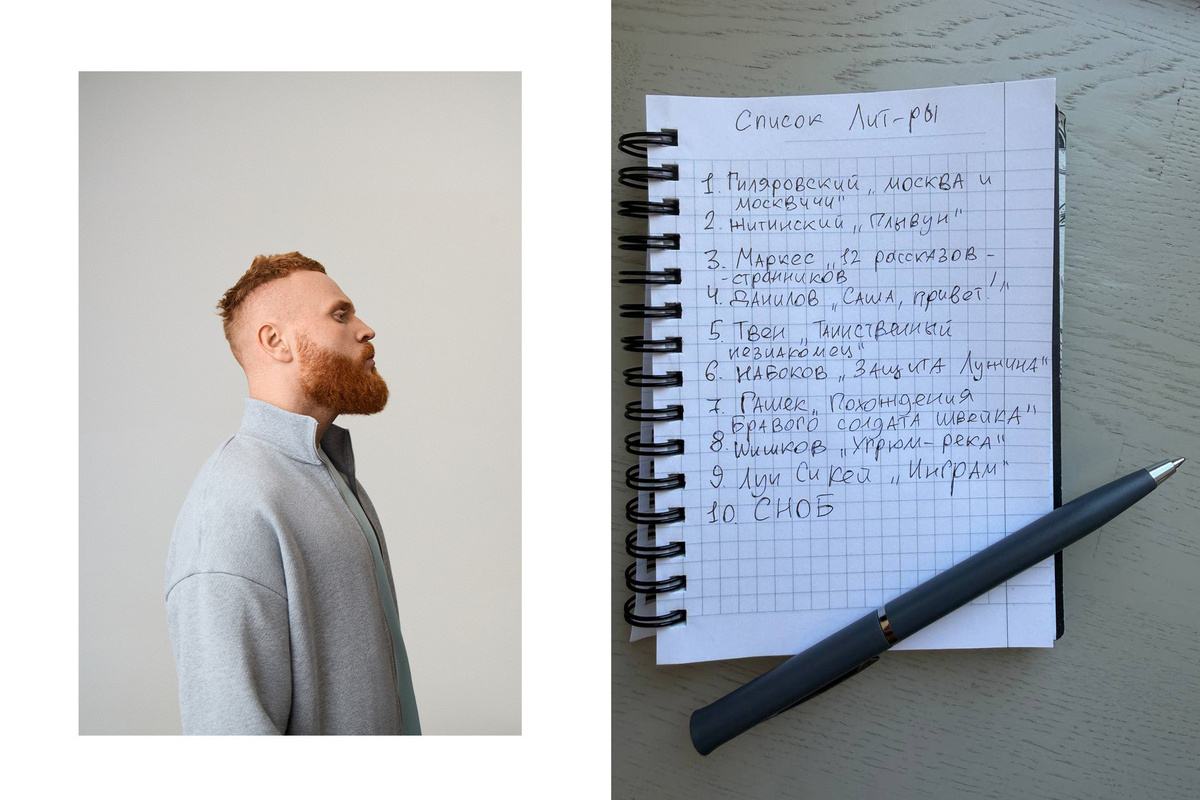 Список Лит-ры
1. Гиляровский „Москва и
москвичи"
2. Житинский „Плывун"
3. Маркес „12 рассказов -
-странников
4. Данилов „Саша, привет!"
5. Твен „Таинственный
незнакомец"
6. Набоков „Защита Лужина"
7. Гашек „Похождения
Бравого солдата швейка"
8. Шишков „Угрюм-река"
9 Луи Си Кей „Инграм"
10. СНОБ